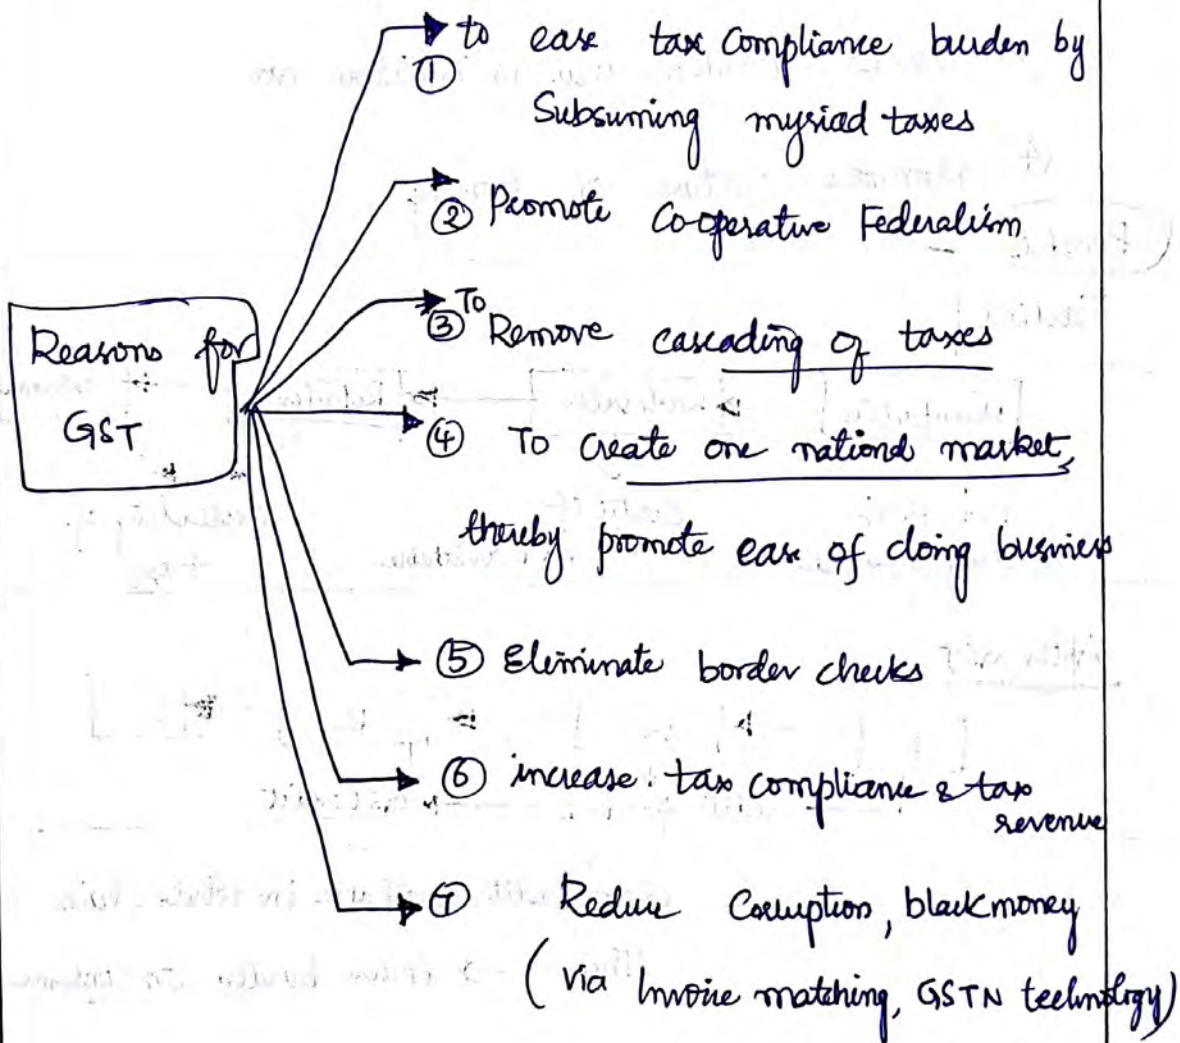 Reasons for
GST
① to ease tax compliance burden by
Subsuming myriad taxes
② Promote Co-operative Federalism
③ To Remove cascading of taxes
④ To Create one national market,
thereby promote ease of doing business
⑤ Eliminate border checks
⑥ increase tax compliance & tax
revenue
⑦ Reduce Corruption, blackmoney
(via Invoice matching, GSTN technology)